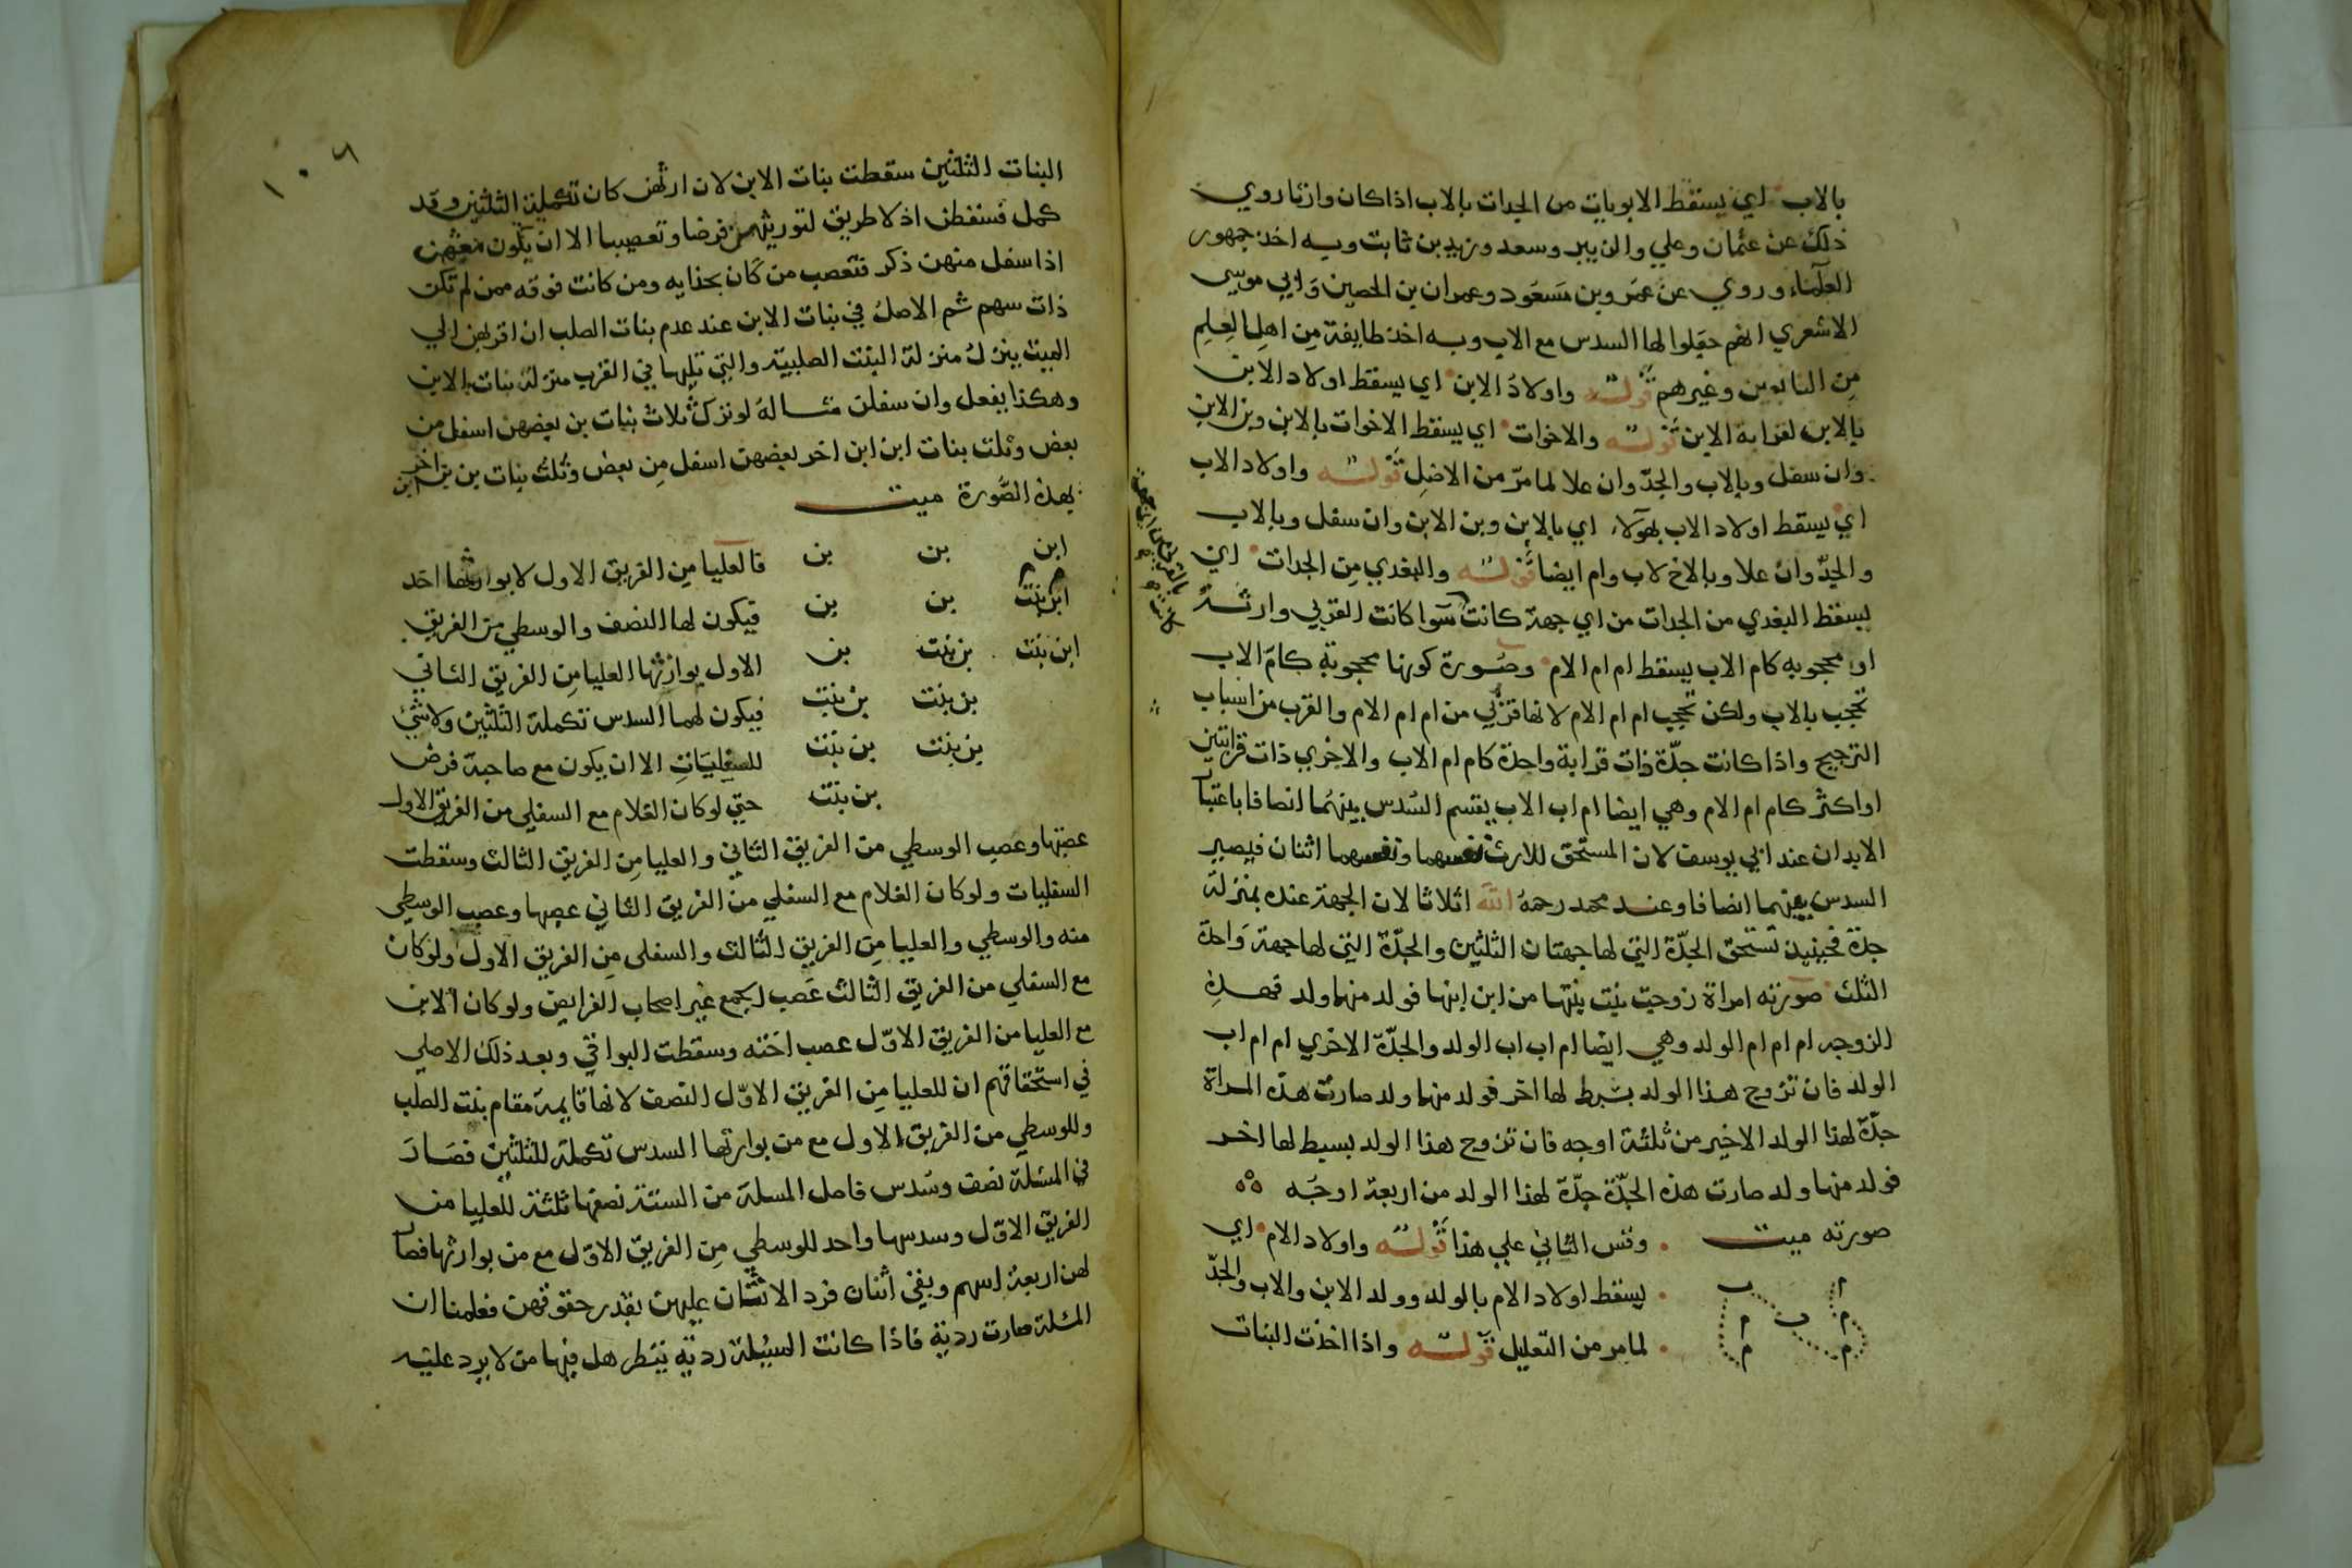 بالاب اي يسقط الابويات من الجدات بالاب اذا كان وارثا روي
ذلك عن عثمان وعلي والزبير وسعد وزيد بن ثابت وبه اخذ جمهور
العلماء وروي عن عمر وبن مسعود وعمران بن الحصين وابي موسى
الاشعري انهم جعلوا لها السدس مع الاب وبه اخذ طايفة من اهل العلم
من التابعين وغيرهم قوله واولاد الابن اي يسقط اولاد الابن
بالابن لقرابة الابن قوله والاخوات اي يسقط الاخوات بالابن وبن الابن
وان سفل وبالاب والجد وان علا لما مر من الاصل قوله واولاد الاب
اي يسقط اولاد الاب بهولاء اي بالابن وبن الابن وان سفل وبالاب
والجد وان علا وبالاخ لاب وام ايضا قوله والبعدي من الجدات اي
يسقط البعدي من الجدات من اي جهة كانت سوا كانت القربي وارثة
او محجوبه كام الاب يسقط ام ام الام وصورة كونها محجوبة كام الاب
تحجب بالاب ولكن تحجب ام ام الام لانها قربي من ام ام الام والقرب من اسباب
الترجيح واذا كانت جدة ذات قرابة واحدة كام ام الاب والاخري ذات قرابتين
او اكثر كام ام الام وهي ايضا ام اب الاب يقسم السدس بينهما انصافا باعتبا
الابدان عند ابي يوسف لان المستحق للارث نفسهما ونفسهما اثنان فيصير
السدس بينهما انصافا وعند محمد رحمه الله اثلاثا لان الجهة عنده بمنزلة
جدة فحينيذ تستحق الجدة التي لها جهتان الثلثين والجدة التي لها جهة واحدة
الثلث صورته امراة زوجت بنت بنتها من ابن ابنها فولد منهما ولد فهذه
الزوجه ام ام ام الولد وهي ايضا ام اب اب الولد والجدة الاخري ام ام اب
الولد فان تزوج هذا الولد بسبط لها اخر فولد منهما ولد صارت هذه المراة
جدة لهذا الولد الاخير من ثلثة اوجه فان تزوج هذا الولد بسبط لها اخر
فولد منهما ولد صارت هذه الجدة جدة لهذا الولد من اربعة اوجه
صورته ميت وقس الثاني علي هذا قوله واولاد الام اي
ا ب يسقط اولاد الام بالولد وولد الابن والاب والجد
م ب م
م م لما مر من التعليل قوله واذا اخذت البنات
كانت
١٠٦
البنات الثلثين سقطت بنات الابن لان ارثهن كان تكملة الثلثين وقد
كمل فسقطن اذ لا طريق لتوريثهن فرضا وتعصيبا الا ان يكون معهن
اذا سفل منهن ذكر فتعصب من كان بحذايه ومن كانت فوقه ممن لم تكن
ذات سهم ثم الاصل في بنات الابن عند عدم بنات الصلب ان اقربهن الي
الميت ينزل منزلة البنت الصلبية والتي تليها في القرب منزلة بنات الابن
وهكذا يفعل وان سفلن مثاله لو ترك ثلاث بنات بن بعضهن اسفل من
بعض وثلث بنات ابن ابن اخر بعضهن اسفل من بعض وثلث بنات بن بن اخر
بهذه الصورة ميت
ابن بن بن فالعليا من الفريق الاول لا يوارثها احد
ابن بنت بن بن فيكون لها النصف والوسطي من الفريق
ابن بنت بن بنت بن الاول يوارثها العليا من الفريق الثاني
بن بنت بن بنت فيكون لهما السدس تكملة الثلثين ولا شئ
بن بنت بن بنت للسفليات الا ان يكون مع صاحبة فرض
بن بنت حتي لو كان الغلام مع السفلي من الفريق الاول
عصبها وعصب الوسطي من الفريق الثاني والعليا من الفريق الثالث وسقطت
السفليات ولو كان الغلام مع السفلي من الفريق الثاني عصبها وعصب الوسطي
منه والوسطي والعليا من الفريق الثالث والسفلى من الفريق الاول ولو كان
مع السفلي من الفريق الثالث عصب الجميع غير اصحاب الفرايض ولو كان الابن
مع العليا من الفريق الاول عصب اخته وسقطت البواقي وبعد ذلك الاصلي
في استحقاقهم ان للعليا من الفريق الاول النصف لانها قايمة مقام بنت الصلب
وللوسطي من الفريق الاول مع من يوارثها السدس تكملة للثلثين فصار
في المسئلة نصف وسدس فاصل المسلة من الستة نصفها ثلثة للعليا من
الفريق الاول وسدسها واحد للوسطي من الفريق الاول مع من يوارثها فصا
لهن اربعة اسهم وبقي اثنان فرد الاثنان عليهن بقدر حقوقهن فعلمنا ان
المسلة صارت ردية فاذا كانت المسئلة ردية ينظر هل فيها من لا يرد عليه